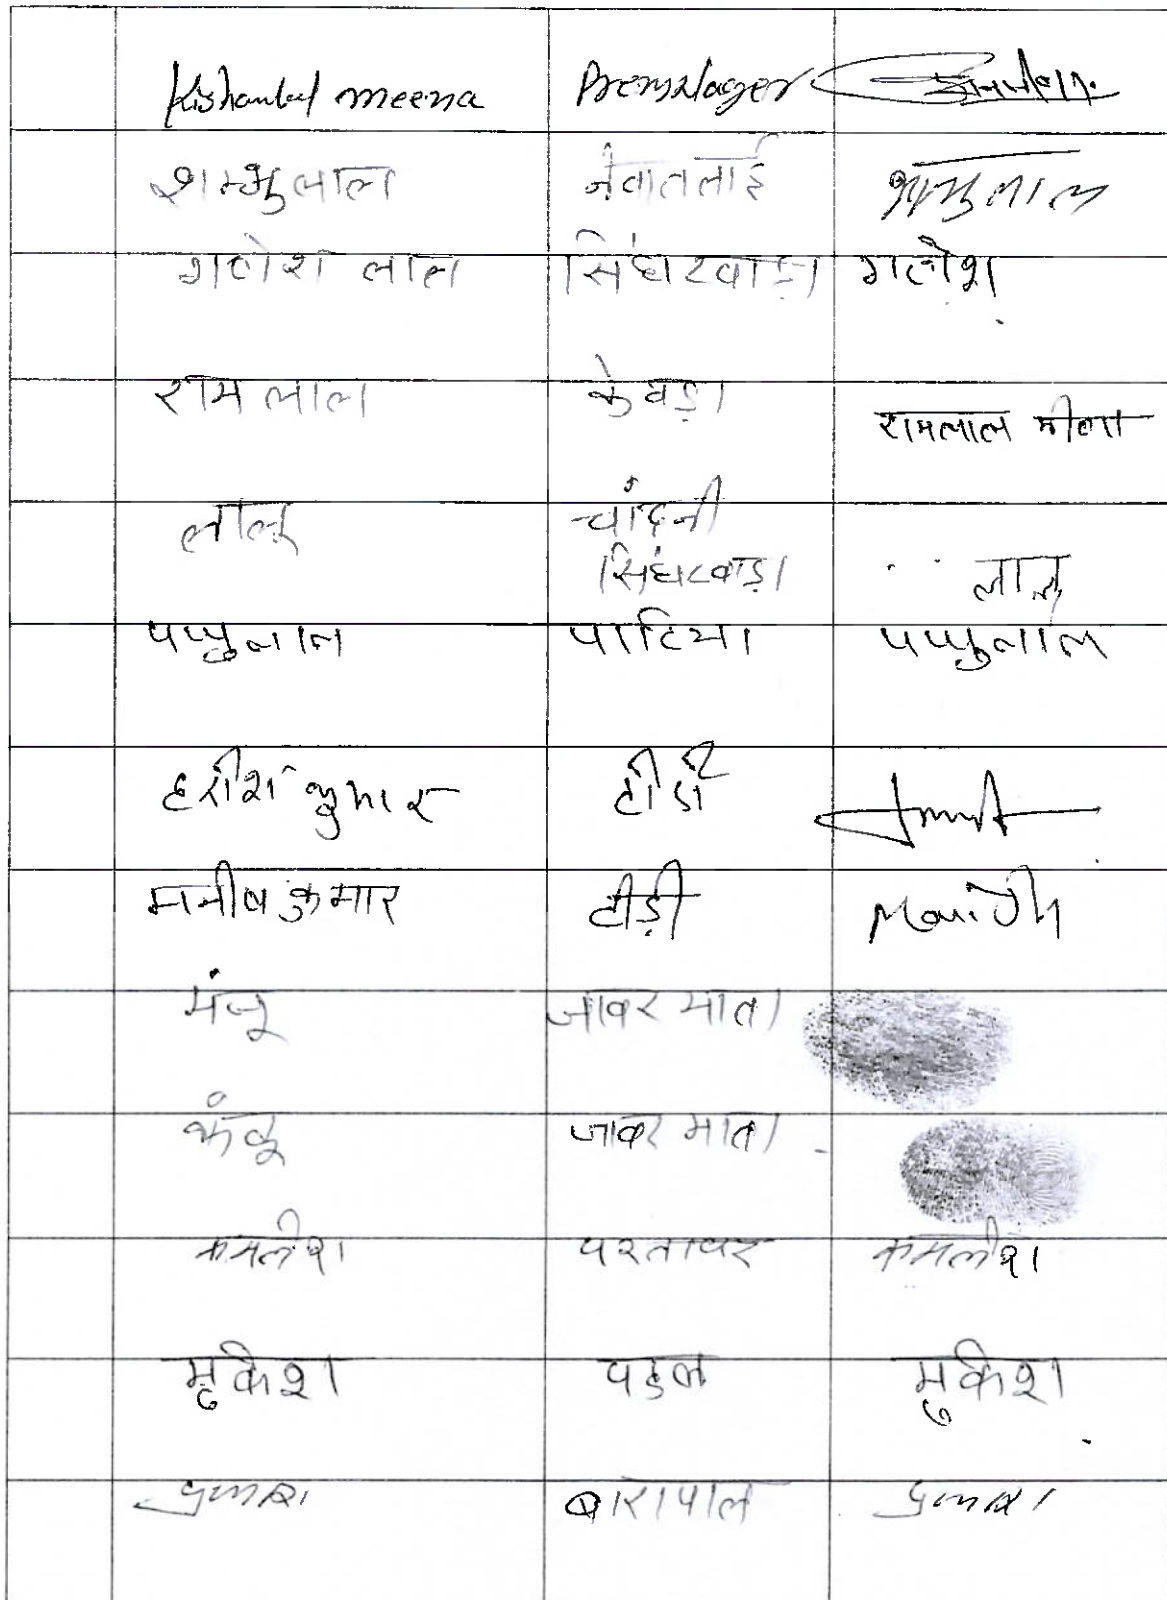 Kishanlal meena Premnager
शम्भुलाल नेवातलाई शम्भुलाल
गणेश लाल सिंघटवाड़ा गणेश
राम लाल केवड़ा
रामलाल मीणा
लालू चांदनी
सिंघटवाड़ा लालू
पप्पुलाल पाटिया पप्पुलाल
हरीश कुमार टीडी
मनीष कुमार टीड़ी Manish
मंजू जावर माता
कंकू जावर माता
कमलेश परतापर कमलेश
मुकेश पडुल मुकेश
बारापाल